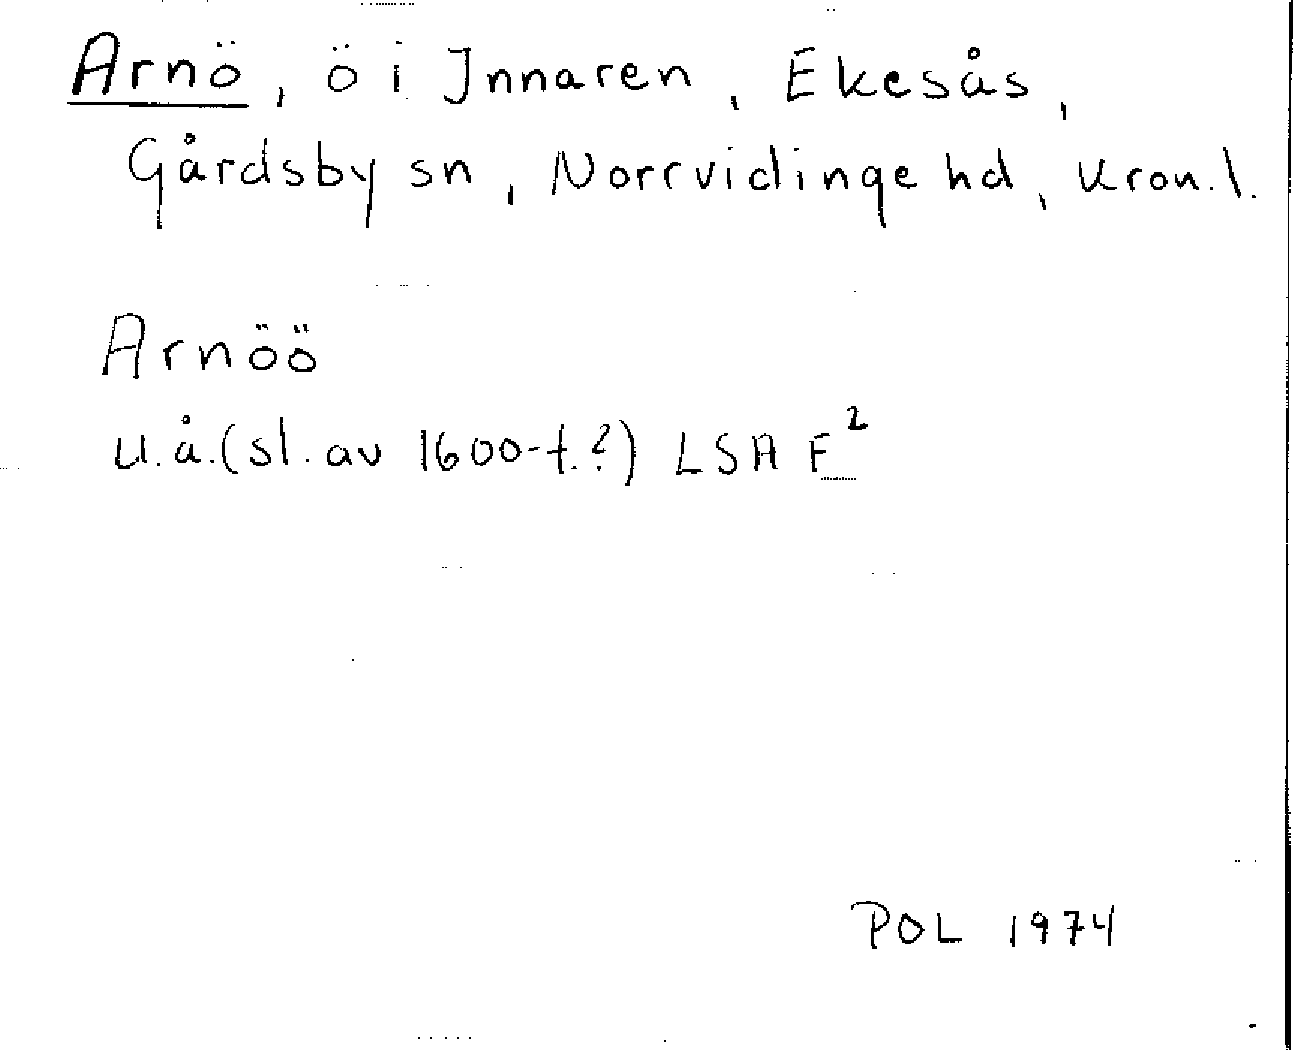 Arnö, ö i Innaren, Ekesås,
Gårdsby sn, Norrvidinge hd, Kron. l.
Arnöö
u.å. (sl. av 1600-t.?) LSA F²
POL 1974